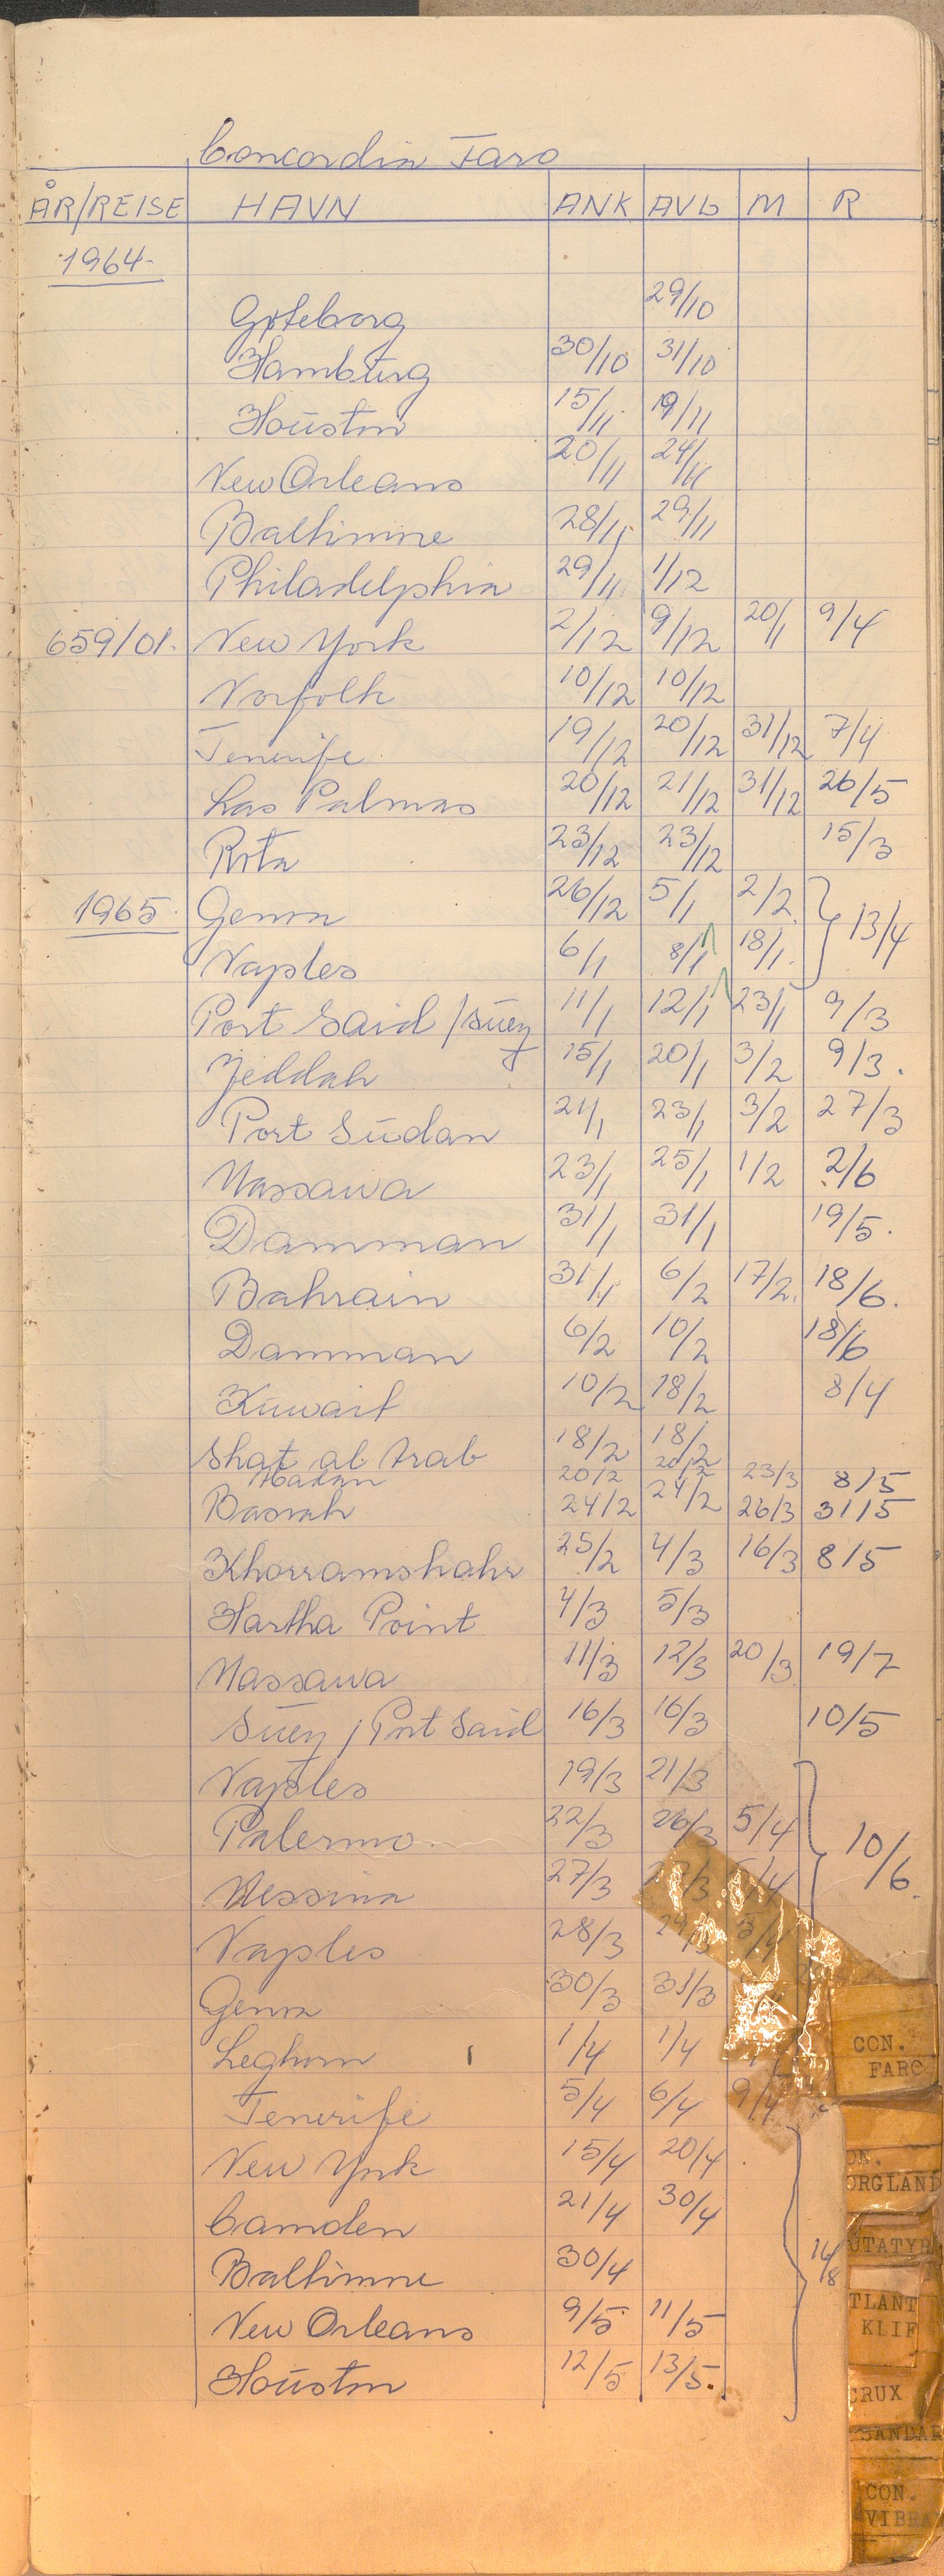 Concordia Faro
ÅR/REISE HAVN ANK AVG M R
1964
Gøteborg 29/10
Hamburg 30/10 31/10
Houston 15/11 19/11
New Orleans 20/11 24/11
Baltimore 28/11 29/11
Philadelphia 29/11 1/12
659/01. New York 2/12 9/12 20/1 9/4
Norfolk 10/12 10/12
Tenerife 19/12 20/12 31/12 7/4
Las Palmas 20/12 21/12 31/12 26/5
Rota 23/12 23/12 15/3
1965 Genoa 26/12 5/1 2/2 13/4
Naples 6/1 8/1 18/1
Port Said / Suez 11/1 12/1 23/1 9/3
Jeddah 15/1 20/1 3/2 9/3.
Port Sudan 21/1 23/1 3/2 27/3
Massawa 23/1 25/1 1/2 2/6
Damman 31/1 31/1 19/5.
Bahrain 31/1 6/2 17/2 18/6.
Damman 6/2 10/2 18/6
Kuwait 10/2 18/2 8/4
Shat al Arab 18/2 18/2
Abadan 20/2 20/2 23/3 8/5
Basrah 24/2 24/2 26/3 31/5
Khorramshahr 25/2 4/3 16/3 8/5
Hartha Point 4/3 5/3
Massawa 11/3 12/3 20/3 19/7
Suez / Port Said 16/3 16/3 10/5
Naples 19/3 21/3
Palermo 22/3 26/3 5/4 10/6.
Messina 27/3
Naples 28/3
Genoa 30/3 31/3
Leghorn 1/4 1/4
Tenerife 5/4 6/4 9/4
New York 15/4 20/4
Camden 21/4 30/4
Baltimore 30/4 14/8
New Orleans 9/5 11/5
Houston 12/5 13/5.
CON.
FARO
ORGLAND
TLANT
KLIF
CRUX
SANDAR
CON.
VIBRA